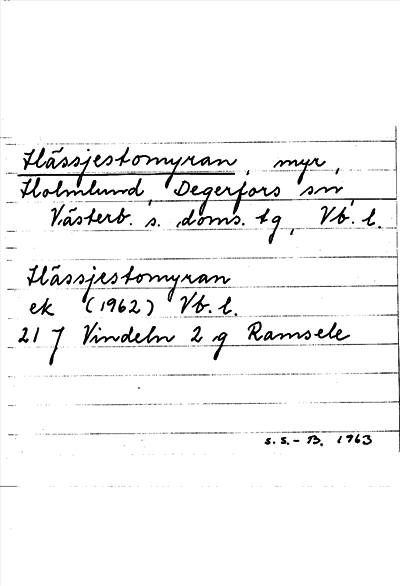 Hässjestomyran, myr,
Holmlund, Degerfors sn,
Västerb. s. doms. tg, Vb. l.
Hässjestomyran
ek (1962) Vb. l.
21 J Vindeln 2 g Ramsele
S. S. - B. 1963